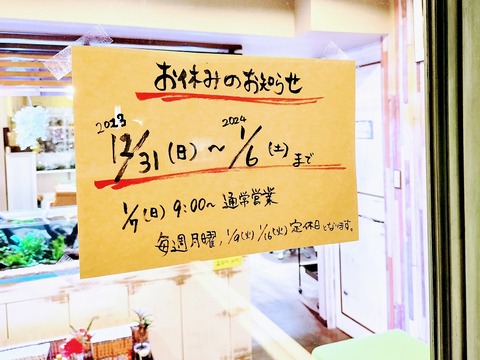 お休みのお知らせ
2023 12/31(日)～ 2024 1/6(土)まで
1/7(日) 9:00～ 通常営業
毎週月曜、1/9(火) 1/16(火) 定休日となります。